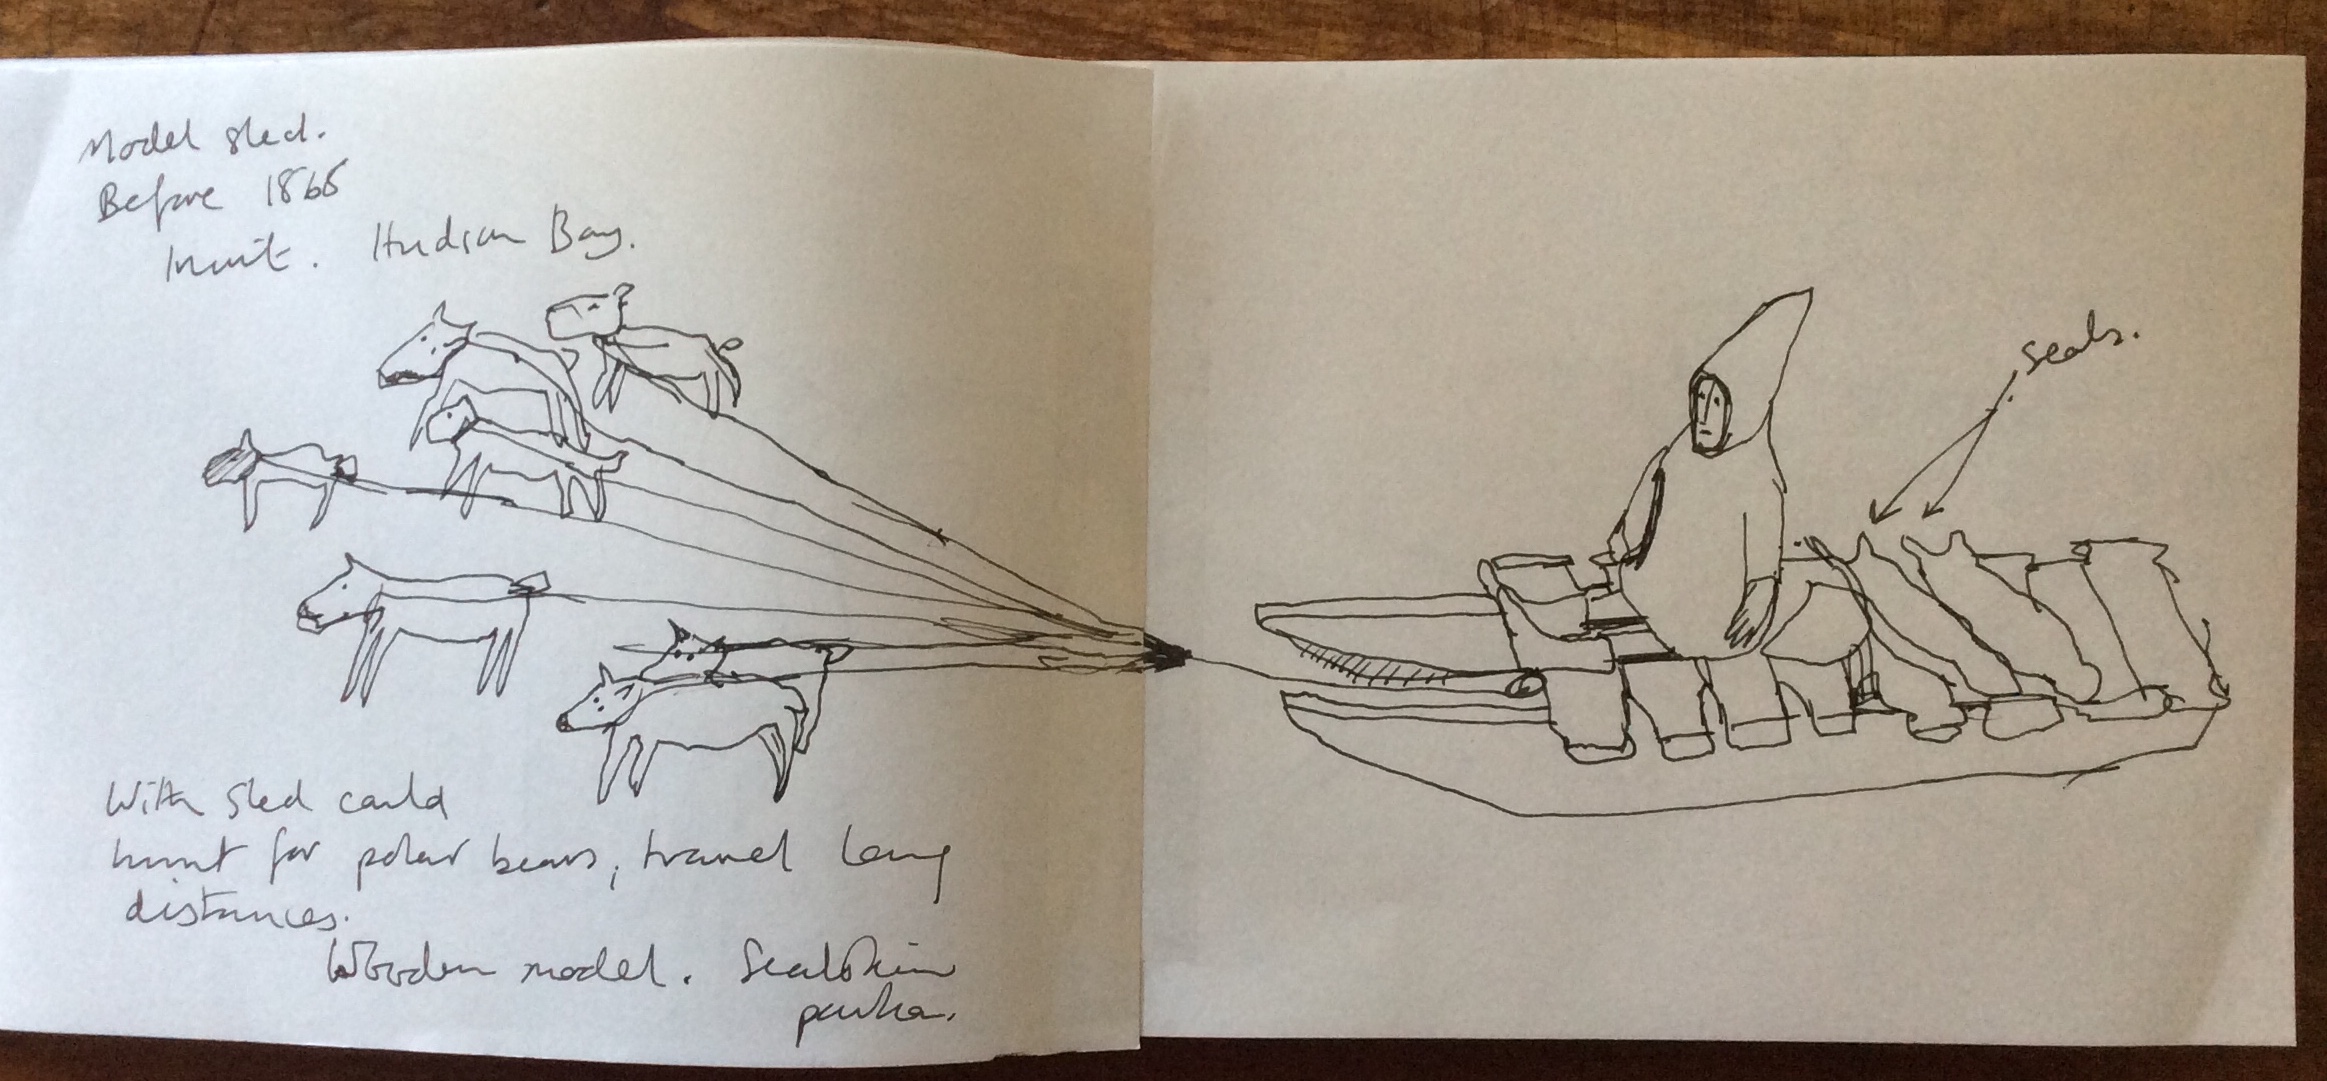 Model sled.
Before 1865
Inuit. Hudson Bay.
seals.
With sled could
hunt for polar bears, travel long
distances.
Wooden model. Sealskin
parka.